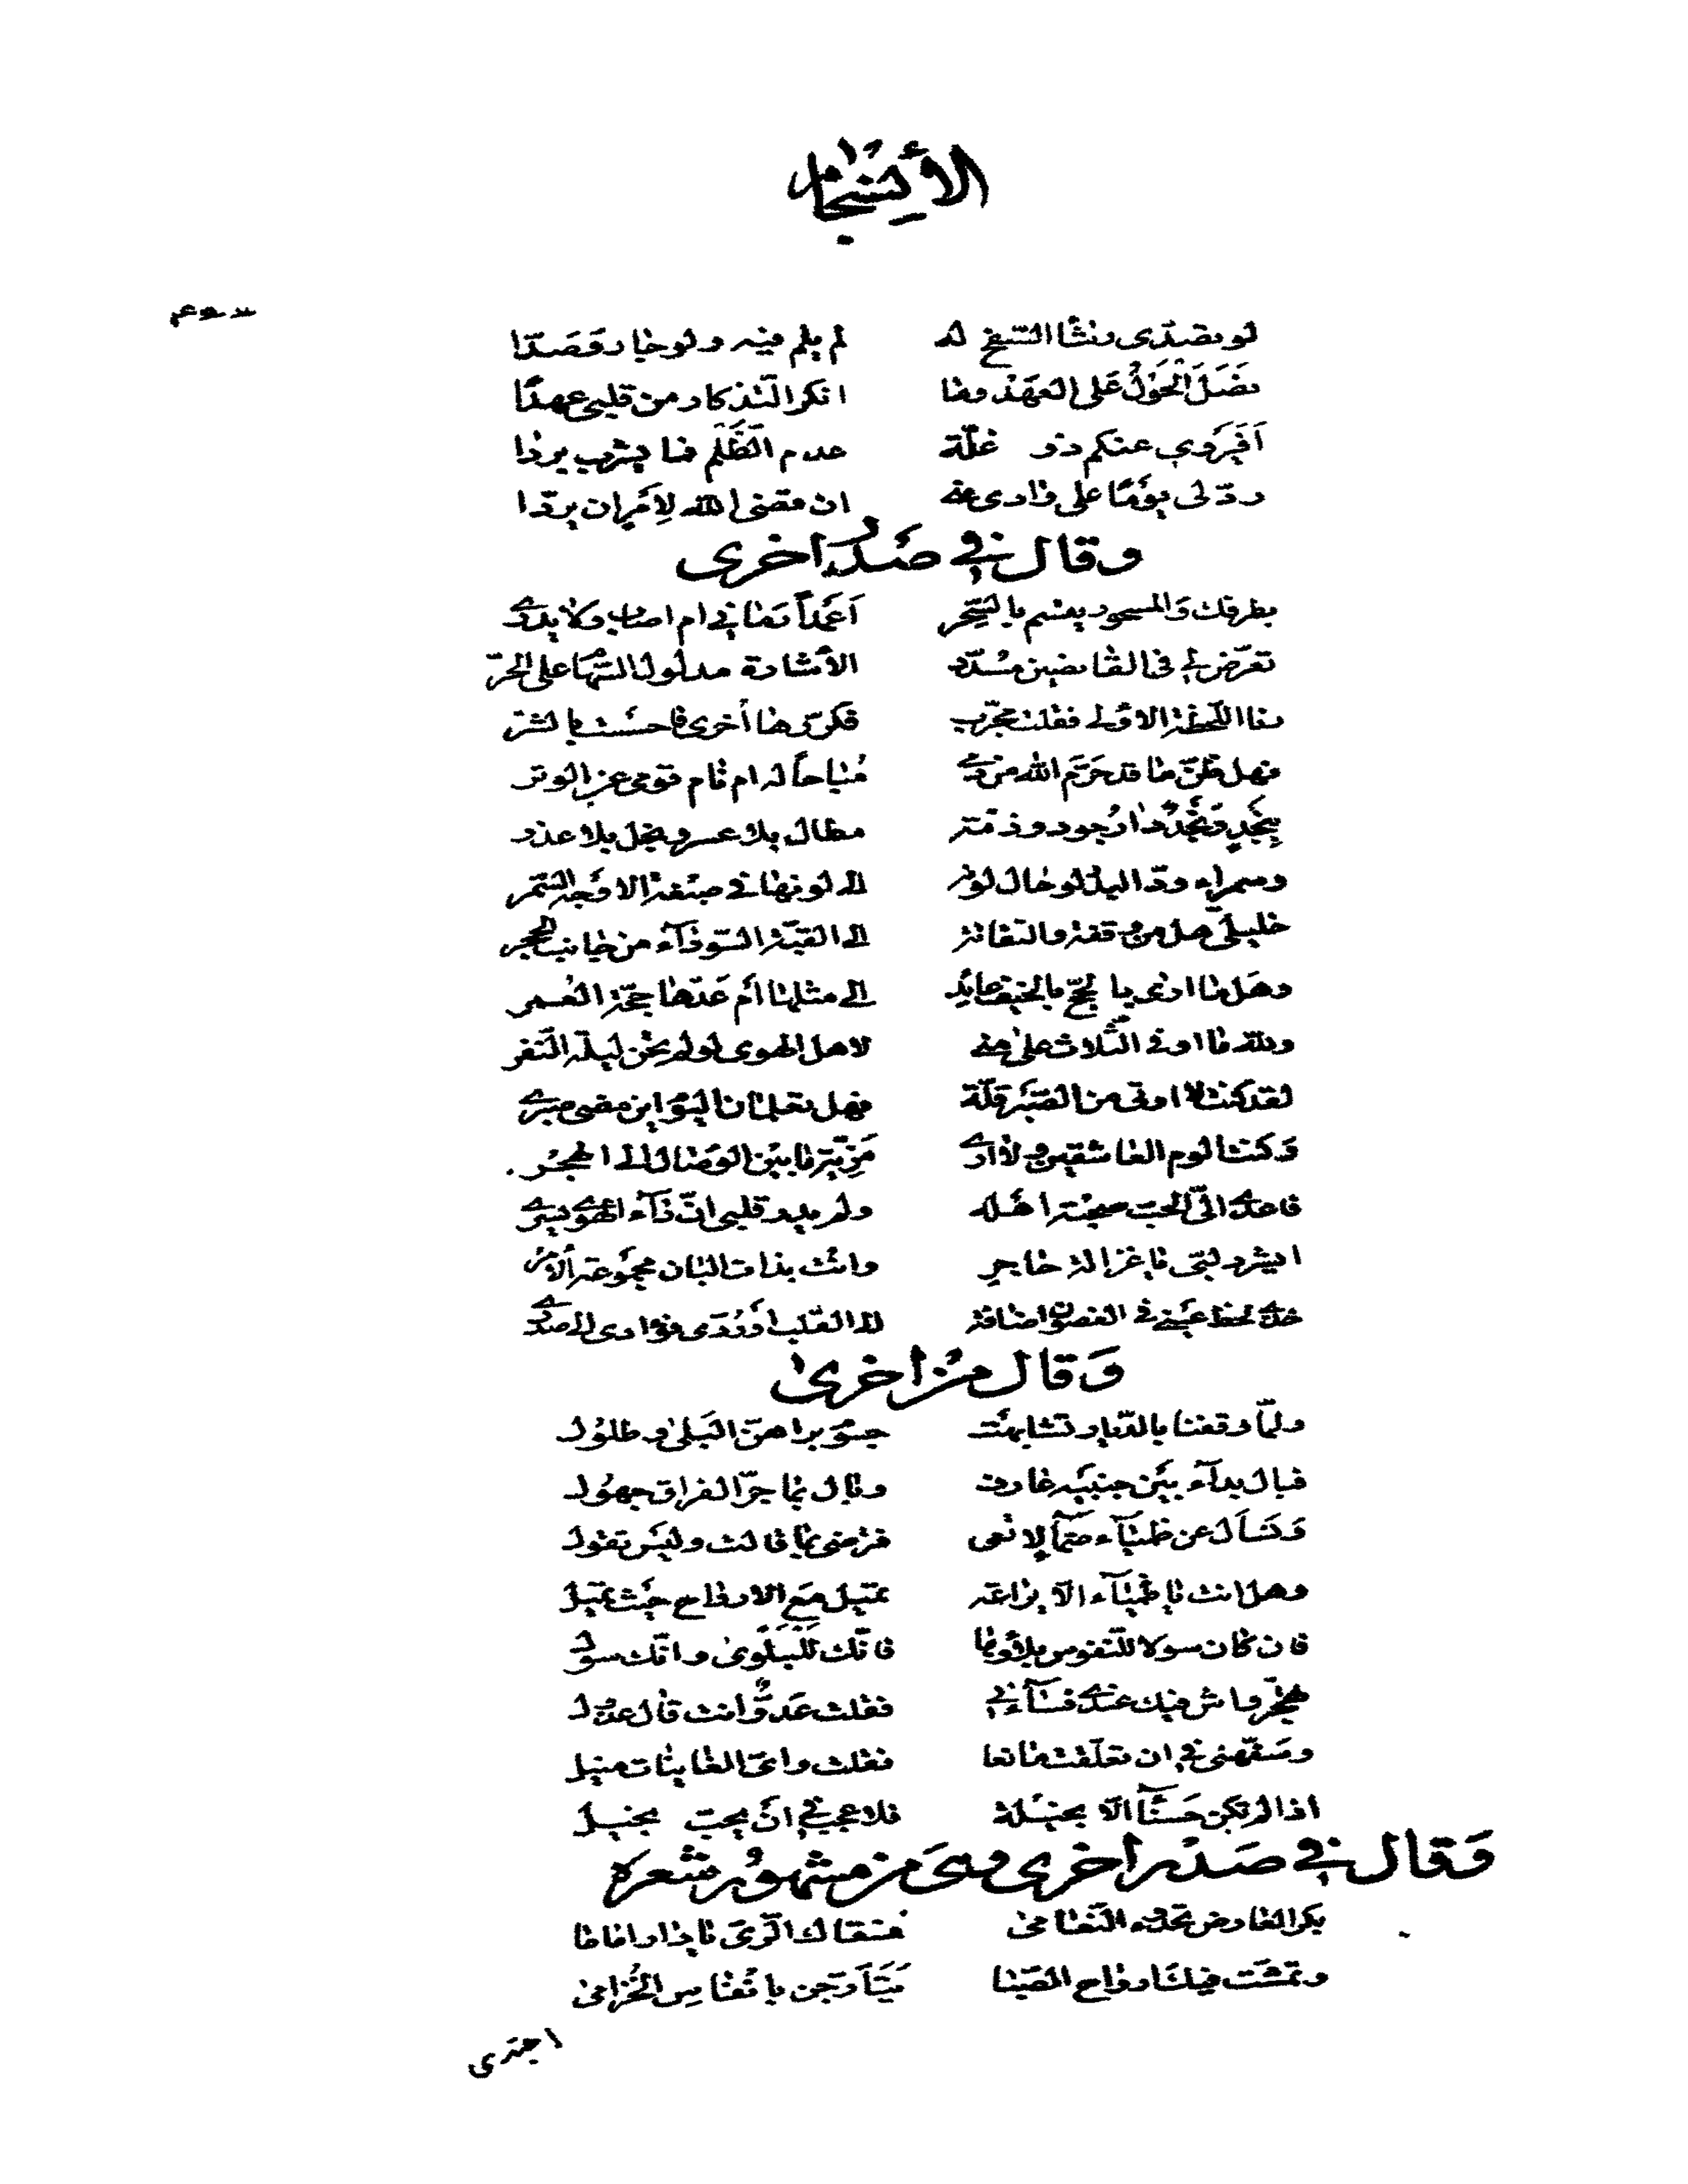 الأنسجام
لو تصدّى رشأ السفح له لم يلم فيه ولو جار وصدّا
نصل الحول على العهد وما انكر التذكار من قلبي عهدا
أفيروي عنكم ذو غلّة عدم الظلم فما يشرب بردا
ردّ لي يومًا على وادى منى ان قضى الله لأمر ان يردّا
وقال في صدر اخرى
بطرفك والمسحور يقسم بالسحر أعمدًا رماني ام اصاب ولا يدرى
تعرّض لي في القانصين مسدّد الأشارة مدلول السهام على النحر
رنا اللحظة الاولى فقلت مجرّب فكرّرها أخرى فاحسست بالشرّ
فهل ظنّ ما قد حرّم الله من دمى مباحًا له ام نام قومى عن الوتر
بنجد ونجد دار جود وذمّة مطال بلا عسر وبخل بلا عذر
وسمراء ودّ البدر لو حال لونه الى لونها في صبغة الاوجه السمر
خليليّ هل من وقفة والتفاتة الى القبّة السوداء من جانب الحجر
وهل ما ارى يا لحجّ بالخيف عائد الى مثلها أم عدّها حجّة العمر
ولله ما اوفى الثلاث على منى لاهل الهوى لو لم تحن ليلة النفر
لقد كنت لا اوتى من الصبر قلّة فهل تعلمان اليوم اين مضى صبرى
وكنت الوم العاشقين ولا ارى مزيّة ما بين الوصال الى الهجر
فاعدى الىّ الحبّ صحبة اهله ولم يدر قلبى انّ داء الهوى يسرى
ايشرد لبّى يا غزالة حاجر وانت بذات البان مجموعة الأمر
خذى لحظ عينى في الغصوب اضافة الى القلب أو ردّى فؤادى الى صدرى
وقال من اخرى
ولمّا وقفنا بالديار تشابهت جسوم براهنّ البلى وطلول
فباك بداء بين جنبيه عارف وباك بما جرّ الفراق جهول
ونسأل عن ظمياء صمّا لا تعى فنرضى بما قالت وليس تقول
وهل انت يا ظمياء الّا يراعة تميل مع الارواح حيث تميل
فان كان سولا للنفوس بلاؤها فانّك للبلوى وانّك سول
ففقلت عدوّ انت قال عذول
وسفّهنى في ان تعلّقت مانعا فقلت واىّ الغانيات منيل
اذا لم تكن حسناء الّا بخيلة فلا عجب في انّ يحبّ بخيل
وقال في صدر اخرى وهى من مشهور شعره
بكر العارض تحدوه النعامى فسقاك الرّىّ يا دار اماما
وتمشّت فيك ارواح الصبا يتأرّجن بانفاس الخزامى
اجتدى